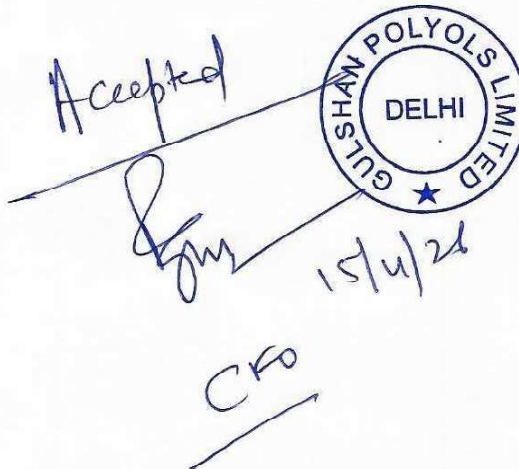 Accepted
GULSHAN POLYOLS LIMITED
DELHI
CFO